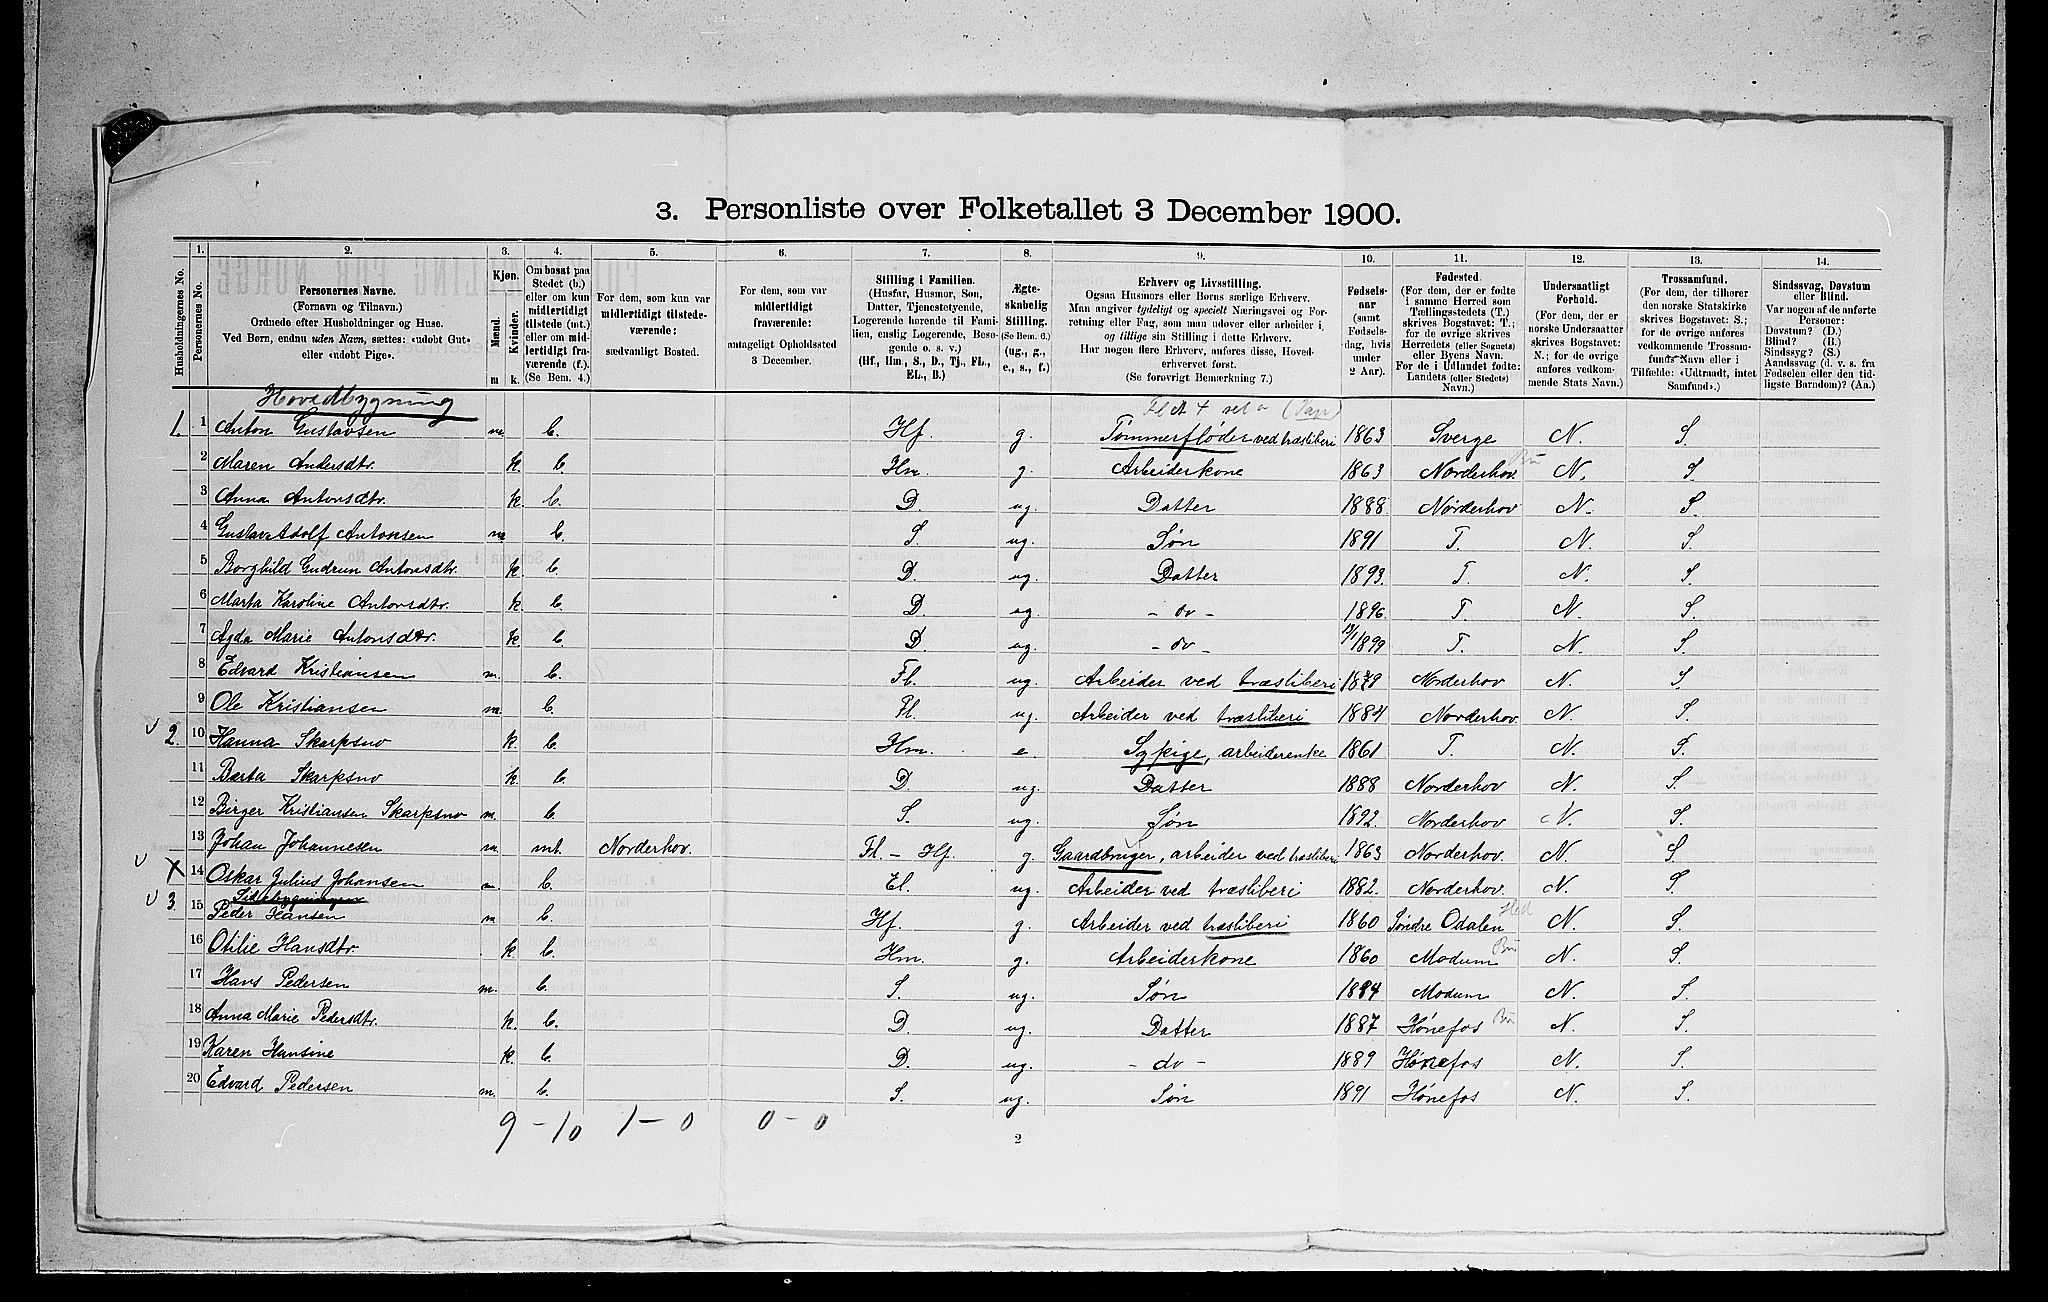 3. Personliste over Folketallet 3 December 1900.
1. 2. 3. 4. 5. 6. 7. 8. 9. 10. 11. 12. 13. 14.
Husholdningernes No.
Personernes No.
Personernes Navne.
(Fornavn og Tilnavn.)
Ordnede efter Husholdninger og Huse.
Ved Børn, endnu uden Navn, sættes: «udøbt Gut»
eller «udøbt Pige».
Kjøn.
Mænd.
Kvinder.
m k.
Om bosat paa
Stedet (b.)
eller om kun
midlertidigt
tilstede (mt.)
eller om mid-
lertidigt fra-
værende (f.)
(Se Bem. 4.)
For dem, som kun var
midlertidigt tilstede-
værende:
sædvanligt Bosted.
For dem, som var
midlertidigt
fraværende:
antageligt Opholdssted
3 December.
Stilling i Familien.
(Husfar, Husmor, Søn,
Datter, Tjenestetyende,
Logerende hørende til Fami-
lien, enslig Logerende, Besø-
gende o. s. v.)
(Hf, Hm, S., D., Tj., FL.,
EL., B.)
Ægte-
skabelig
Stilling.
(Se Bem. 6.)
(ug., g.,
e., s., f.)
Erhverv og Livsstilling.
Ogsaa Husmors eller Børns særlige Erhverv.
Man angiver tydeligt og specielt Næringsvei og For-
retning eller Fag, som man udøver eller arbeider i,
og tillige sin Stilling i dette Erhverv.
Har nogen flere Erhverv, anføres disse, Hoved-
erhvervet først.
(Se forøvrigt Bemerkning 7.)
Fødsels-
aar
(samt
Fødsels-
dag, hvis
under
2 Aar).
Fødested.
(For dem, der er fødte
i samme Herred som
Tællingsstedets (T.)
skrives Bogstavet: T.;
for de øvrige skrives
Herredets (eller Sognets)
eller Byens Navn.
For de i Udlandet fødte:
Landets (eller Stedets)
Navn.)
Undersaatligt
Forhold.
(For dem, der er
norske Undersaatter
skrives Bogstavet:
N.; for de øvrige
anføres vedkom-
mende Stats Navn.)
Trossamfund.
(For dem, der tilhører
den norske Statskirke
skrives Bogstavet: S.;
for de øvrige anføres
vedkommende Trossam-
funds Navn eller i
Tilfælde: «Udtraadt, intet
Samfund».)
Sindssvag, Døvstum
eller Blind.
Var nogen af de anførte
Personer:
Døvstum? (D.)
Blind? (B.)
Sindssyg? (S.)
Aandssvag (d. v. s. fra
Fødselen eller den tid-
ligste Barndom)? (Aa.)
Hovedbygning
1. 1 Anton Gustavsen m. b. Hf. g. Tømmerfløder ved træsliberi 1863 Sverge N. S.
2 Maren Andersdtr. k. b. Hm. g. Arbeiderkone 1863 Norderhov N. S.
3 Anna Antonsdtr. k b. D ug. Datter 1888. Norderhov N. S.
4 Gustav Adolf Antonsen m b. S. ug. Søn 1891 T. N. S.
5 Borghild Gudrun Antonsdtr. k. b. D. ug. Datter 1893. T. N. S.
6 Marta Karoline Antonsdtr. k b. D. ug. - do - 1896. T. N. S.
7 Agda Marie Antonsdtr. k b. D. ug. - do - 1899 T. N. S.
8 Edvard Kristiansen m. b. Fl. ug. Arbeider ved træsliberi 1879 Norderhov N. S.
9 Ole Kristiansen m. b. Fl. ug. Arbeider ved træsliberi 1884 Norderhov. N. S.
2. 10 Hanna Skarpsno k. b. Hm. e. Sypige, arbeiderenke 1861 T. N. S.
11 Berta Skarpsno k b. D. ug. Datter 1888 Norderhov N. S.
12 Birger Kristiansen Skarpsno m. b. S. ug. Søn 1892. Norderhov N. S.
13 Johan Johannesen m. mt. Norderhov. Fl. - Hf. g. Gaardbruger, arbeider ved træsliberi 1863 Norderhov. N. S.
X 14 Oskar Julius Johansen m. b. El. ug. Arbeider ved træsliberi 1882. Norderhov. N. S.
Sidebygningen
3. 15 Peder Hansen m b. Hf. g. Arbeider ved træsliberi 1860 Søndre Odalen Hed N. S.
16 Otilie Hansdtr. k b. Hm. g. Arbeiderkone 1860 Modum Bu N. S.
17 Hans Pedersen m. b. S. ug. Søn 1884 Modum N. S.
18 Anna Marie Pedersdtr. k. b. D. ug. Datter 1887. Hønefos Bu N. S.
19 Karen Hansine k. b. D. ug. - do - 1889 Hønefos N. S.
20 Edvard Pedersen m. b. S. ug. Søn 1891 Hønefos N. S.
9 - 10 1 - 0 0 - 0
2